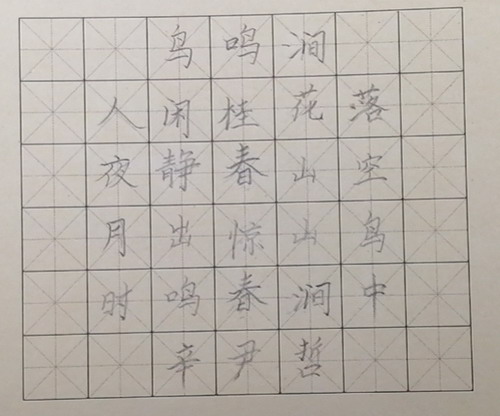 鸟鸣涧
人闲桂花落
夜静春山空
月出惊山鸟
时鸣春涧中
辛尹哲